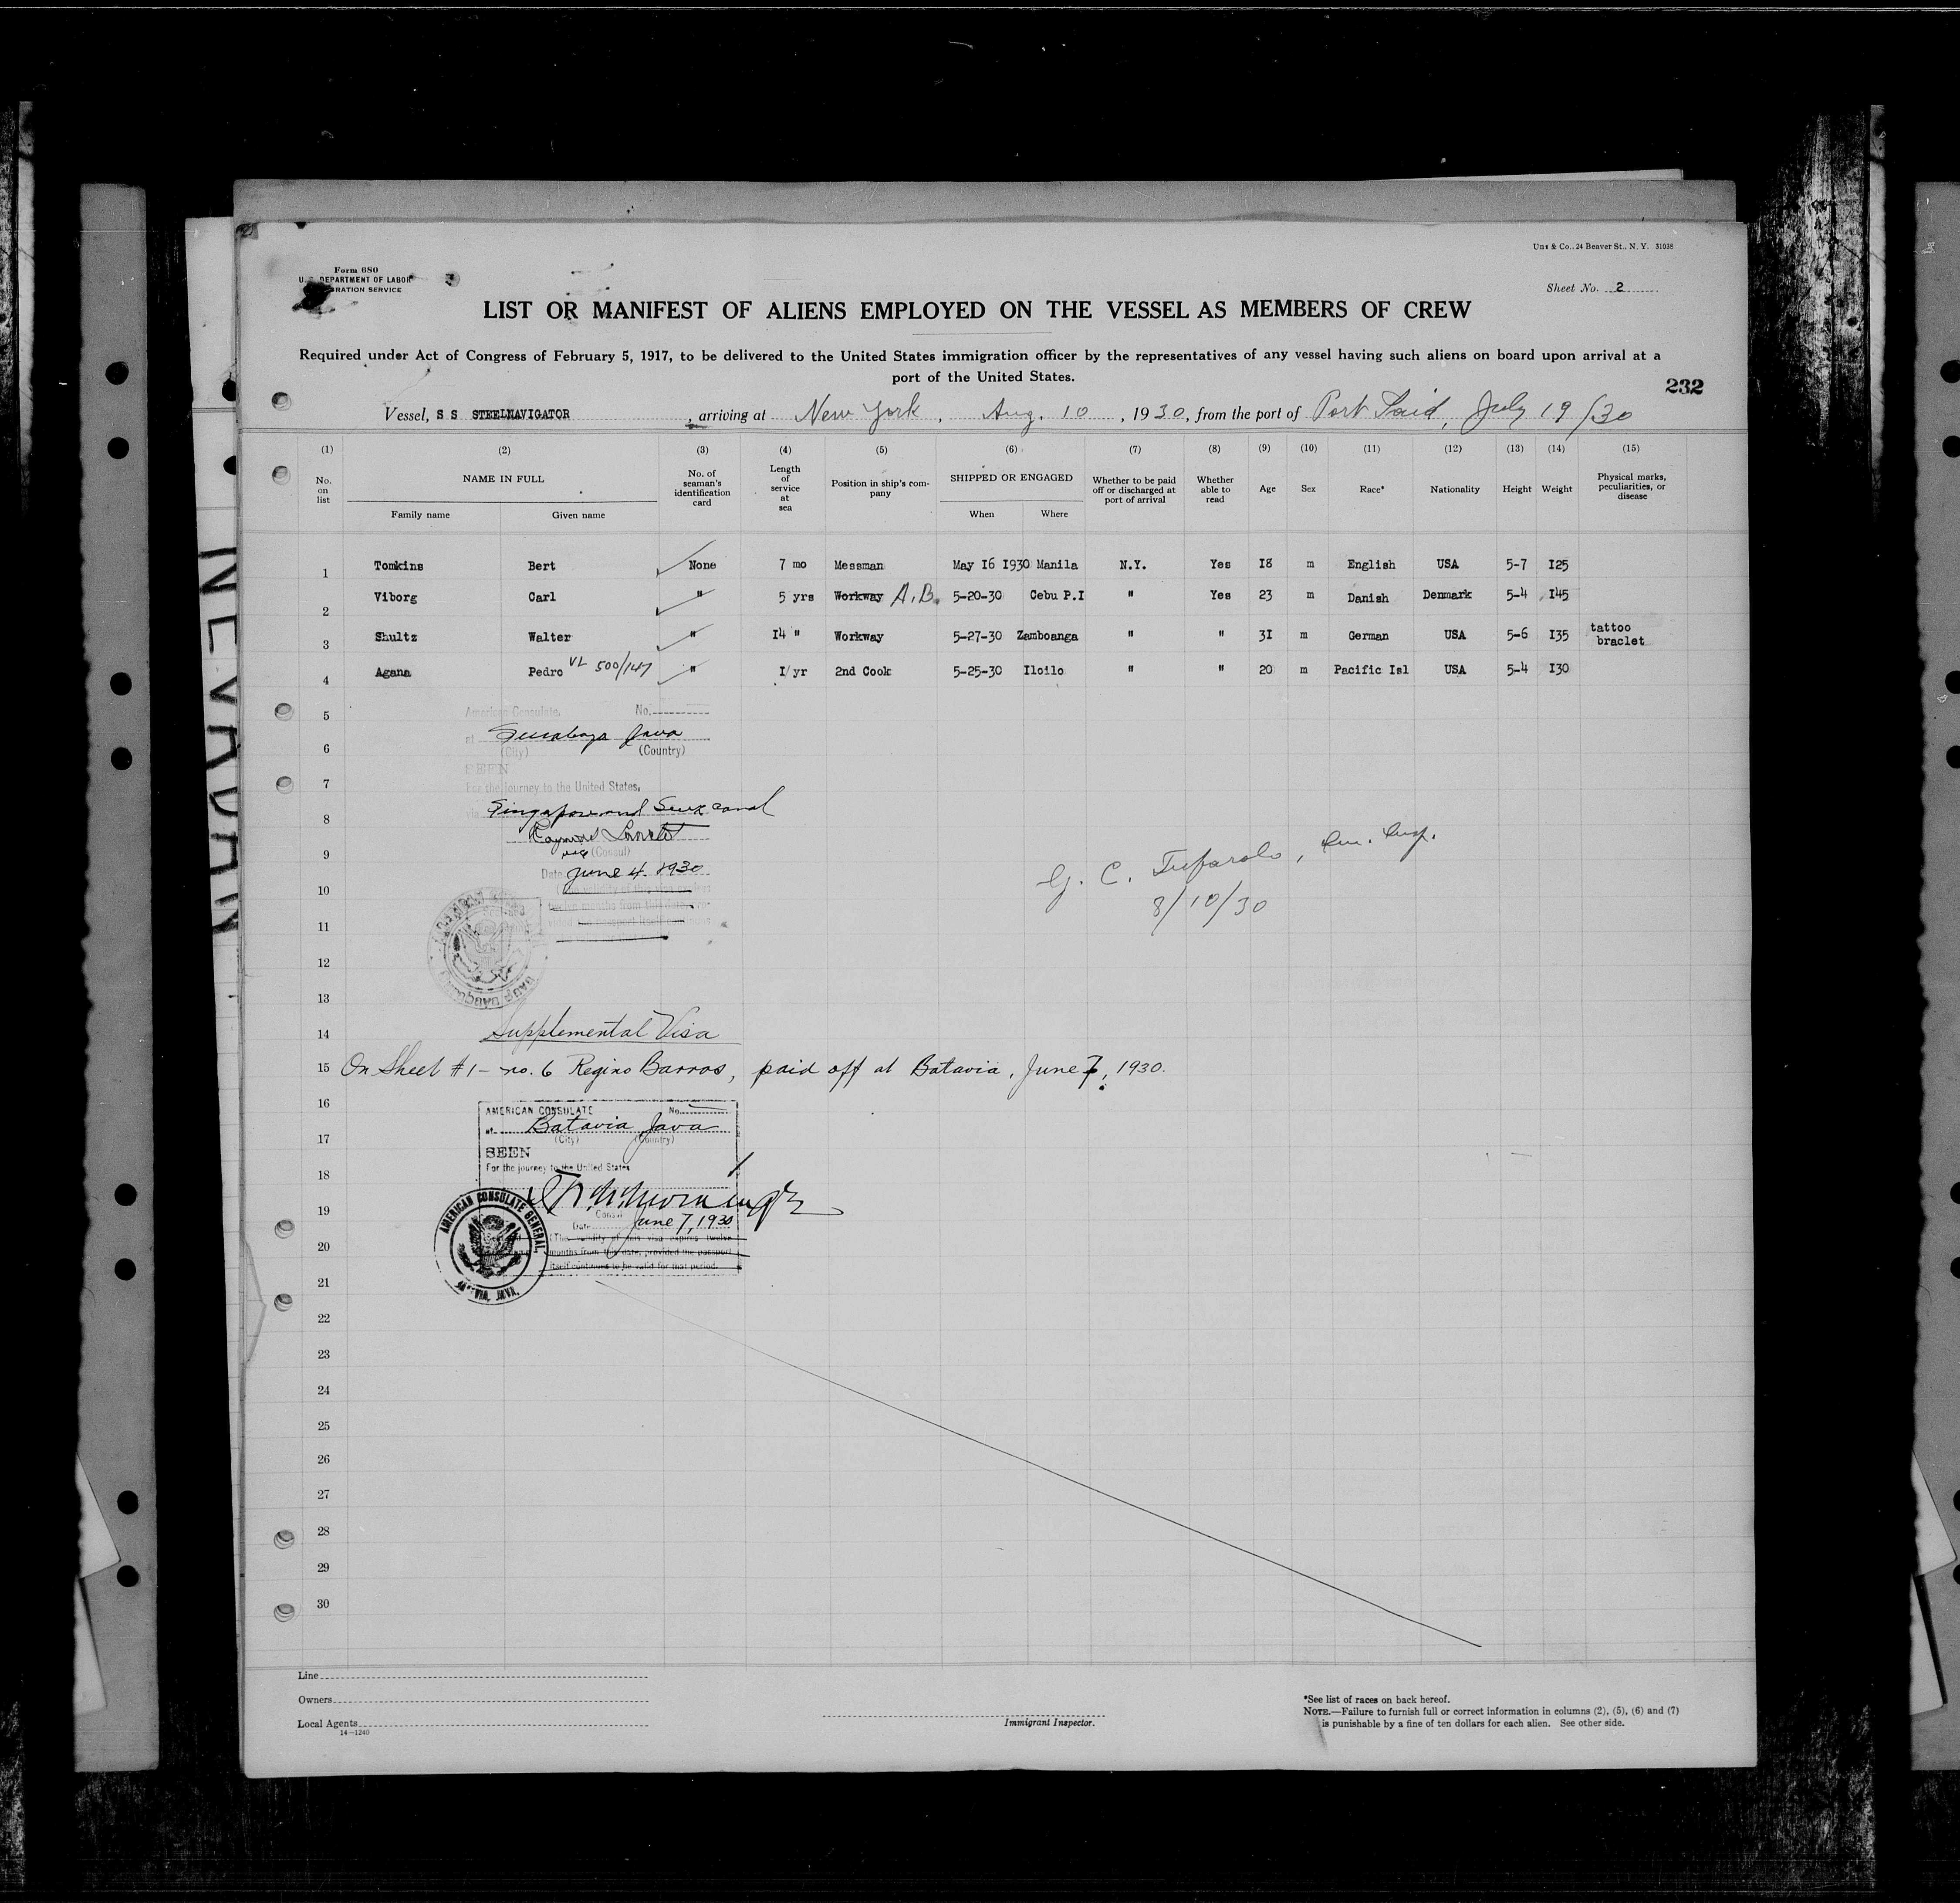 Uns & Co., 24 Beaver St., N. Y. 31038
Form 680
U. S. DEPARTMENT OF LABOR
RATION SERVICE
Sheet No. 2
LIST OR MANIFEST OF ALIENS EMPLOYED ON THE VESSEL AS MEMBERS OF CREW
Required under Act of Congress of February 5, 1917, to be delivered to the United States immigration officer by the representatives of any vessel having such aliens on board upon arrival at a
port of the United States.
232
Vessel, S S STEELNAVIGATOR, arriving at New York, Aug. 10, 1930, from the port of Port Said, July 19/30
(1) (2) (3) (4) (5) (6) (7) (8) (9) (10) (11) (12) (13) (14) (15)
No. on list NAME IN FULL Family name Given name No. of seaman's identification card Length of service at sea Position in ship's company SHIPPED OR ENGAGED When Where Whether to be paid off or discharged at port of arrival Whether able to read Age Sex Race* Nationality Height Weight Physical marks, peculiarities, or disease
1 Tomkins Bert None 7 mo Messman May I6 I930 Manila N.Y. Yes I8 m English USA 5-7 I25
2 Viborg Carl " 5 yrs Workway A.B. 5-20-30 Cebu P.I " Yes 23 m Danish Denmark 5-4 I45
3 Shultz Walter " I4 " Workway 5-27-30 Zamboanga " " 3I m German USA 5-6 I35 tattoo braclet
4 Agana Pedro VL 500/147 " I/yr 2nd Cook 5-25-30 Iloilo " " 20 m Pacific Isl USA 5-4 I30
5 American Consulate, No.
at Surabaya Java
6 (City) (Country)
SEEN
7 For the journey to the United States,
8 via Singapore and Suez canal
9 (Consul)
Date June 4. 1930
10
11
12
13
G. C. Tufarolo, Im. Insp.
8/10/30
14 Supplemental Visa
15 On Sheet #1 - no. 6 Regino Barros, paid off at Batavia, June 7, 1930.
16 AMERICAN CONSULATE No.
at Batavia Java
17 (City) (Country)
SEEN
For the journey to the United States
18
19 Consul
Date June 7, 1930
(The validity of this visa expires twelve
20 months from this date, provided the passport
itself continues to be valid for that period.
AMERICAN CONSULATE GENERAL, BATAVIA, JAVA.
21
22
23
24
25
26
27
28
29
30
Line
Owners
Local Agents
14—1240
Immigrant Inspector.
*See list of races on back hereof.
NOTE.—Failure to furnish full or correct information in columns (2), (5), (6) and (7)
is punishable by a fine of ten dollars for each alien. See other side.